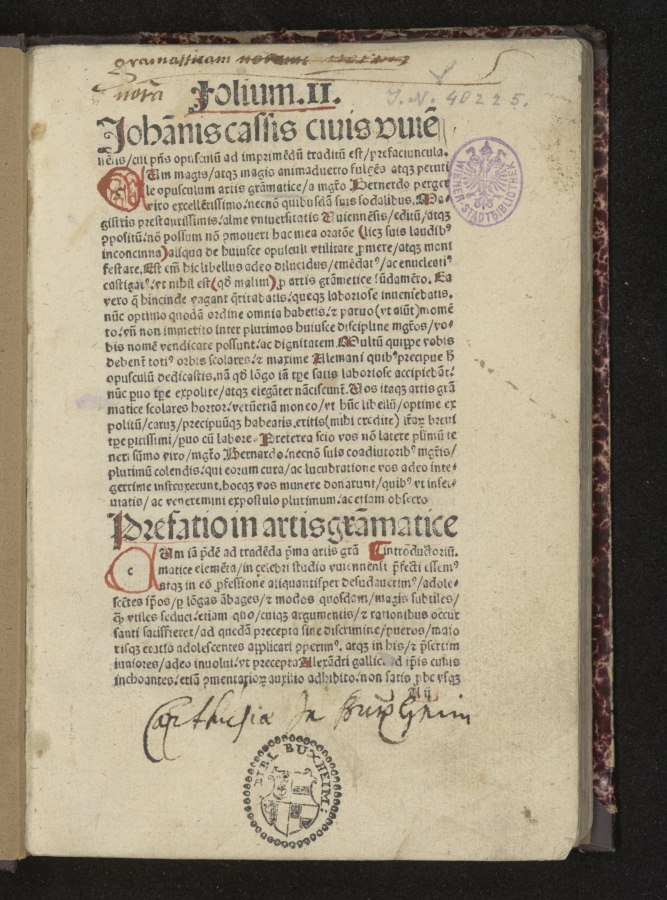 gramaticam
notā
Folium.II.
J.N. 40225.
Johānis cassis ciuis viuiē
nēsis/cui pñs opusculū ad imprimēdū traditū est/prefaciuncula.
Um magis/atqз magis animaduerto fulgēs atqз perutile
le opusculum artis grāmatice/a mgro Bernerdo perger
viro excellētissimo.necnō quibusdā suis sodalibus.Ma-
gistris prestantissimis.alme vniuersitatis Viennēsis/editū/atqз
ppositū.nō possum nō pmoueri hac mea oratōe (licз suis laudibꝰ
inconcinna)aliqua de huiusce opusculi vtilitate pmere/atqз mani
festare.Est em̄ hic libellus adeo dilucidus/emēdatꝰ/ac enucleatꝰ
castigatꝰ.vt nihil est(qđ malim)p artis grāmatice fūdamēto.Ea
vero q̄ hincinde vagant q̄ritabatis.queqз laboriose inueniebatis.
nūc optimo quodā ordine omnia habetis.ꝛ paruo(vt aiūt)momē
to.vn̄ non immerito inter plurimos huiusce discipline mgros/vo-
bis nomē vendicare possunt.ac dignitatem.Multū quippe vobis
debent totiꝰ orbis scolares.ꝛ maxime Alemani quibꝰ precipue h̄
opusculū dedicastis.nā qđ lōgo iā tpe satis laboriose accipiebāt.
nūc puo tpe expolite/atqз elegāter nāciscunt.Vos itaqз artis grā
matice scolares hortor.verūetiā moneo/vt hūc libellū/optime ex
politū/caruз/precipuūqз habeatis.eritis(mihi credite) itaqз breui
tpe picissimi/puo cū labore. Preterea scio vos nō latere plimū te
neri sūmo viro/mgro Bernardo.necnō suis coadiutoribꝰ mgris/
plurimū colendis.qui eorum cura/ac lucubratione vos adeo inte-
gerrime instruxerunt.hocqз vos munere donarunt/quibꝰ vt inser-
uiatis/ac veneremini expostulo plurimum.ac etiam obsecro
Prefatio in artis grāmatice
c
Um iā pđē ad tradēda pma artis grā introductoriū.
matice elemēta/in celebri studio viuiennensi pfecti essemꝰ
atqз in eō pfessione aliquantisper desudauerimꝰ/adole-
scētes ipos/p lōgas ābages/ꝛ modos quosdam/magis subtiles/
q̄ vtiles seduci.etiam quo/cuiqз argumentis/ꝛ rationibus occur
santi satisfieret/ad quedā precepta sine discrimine/pueros/maio
risqз etatis adolescentes applicari pperimꝰ.atqз in his/ꝛ psertim
iuniores/adeo inuolui.vt precepta Alexādri gallici ad ipis cunis
inchoantes.etiā pmentarioꝝ auxilio adhibito.non satis pbe vsqз
Aij
Carthusia In Buxheim
WIENER STADTBIBLIOTHEK
BIBL. BUXHEIM: